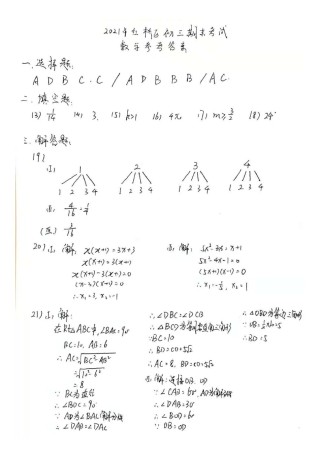 2021年红桥区初三期末考试
数学参考答案
一、选择题:
A D B C C / A D B B B / A C
二、填空题:
13) 1/4 14) 3 15) k>1 16) 4π 17) m≥3/2 18) 24
三、解答题:
19)
① 1 2 3 4
1 2 3 4 1 2 3 4 1 2 3 4 1 2 3 4
② 4/16=1/4
③ 3/16
20) ① 解: x(x+1)=3x+3
x(x+1)=3(x+1)
x(x+1)-3(x+1)=0
(x-3)(x+1)=0
∴x₁=3, x₂=-1
② 解: 5x²-3x=x+1
5x²-4x-1=0
(5x+1)(x-1)=0
∴x₁=-1/5, x₂=1
21) ① 解:
在Rt△ABC中, ∠BAC=90°
BC=10, AB=6
∴AC=√BC²-AB²
=√10²-6²
=8
∵BC为直径
∴∠BDC=90°
∵AD为∠BAC角平分线
∴∠DAB=∠DAC
∴∠DBC=∠DCB
∴△BCD为等腰直角三角形
∵BC=10
∴BD=CD=5√2
∴AC=8, BD=CD=5√2
② 解: 连接OB, OD
∵∠CAB=60°, AD为角平分线
∴∠DAB=30°
∴∠BOD=60°
∵OB=OD
∴△OBD为等边三角形
∵OB=1/2×10=5
∴BD=5